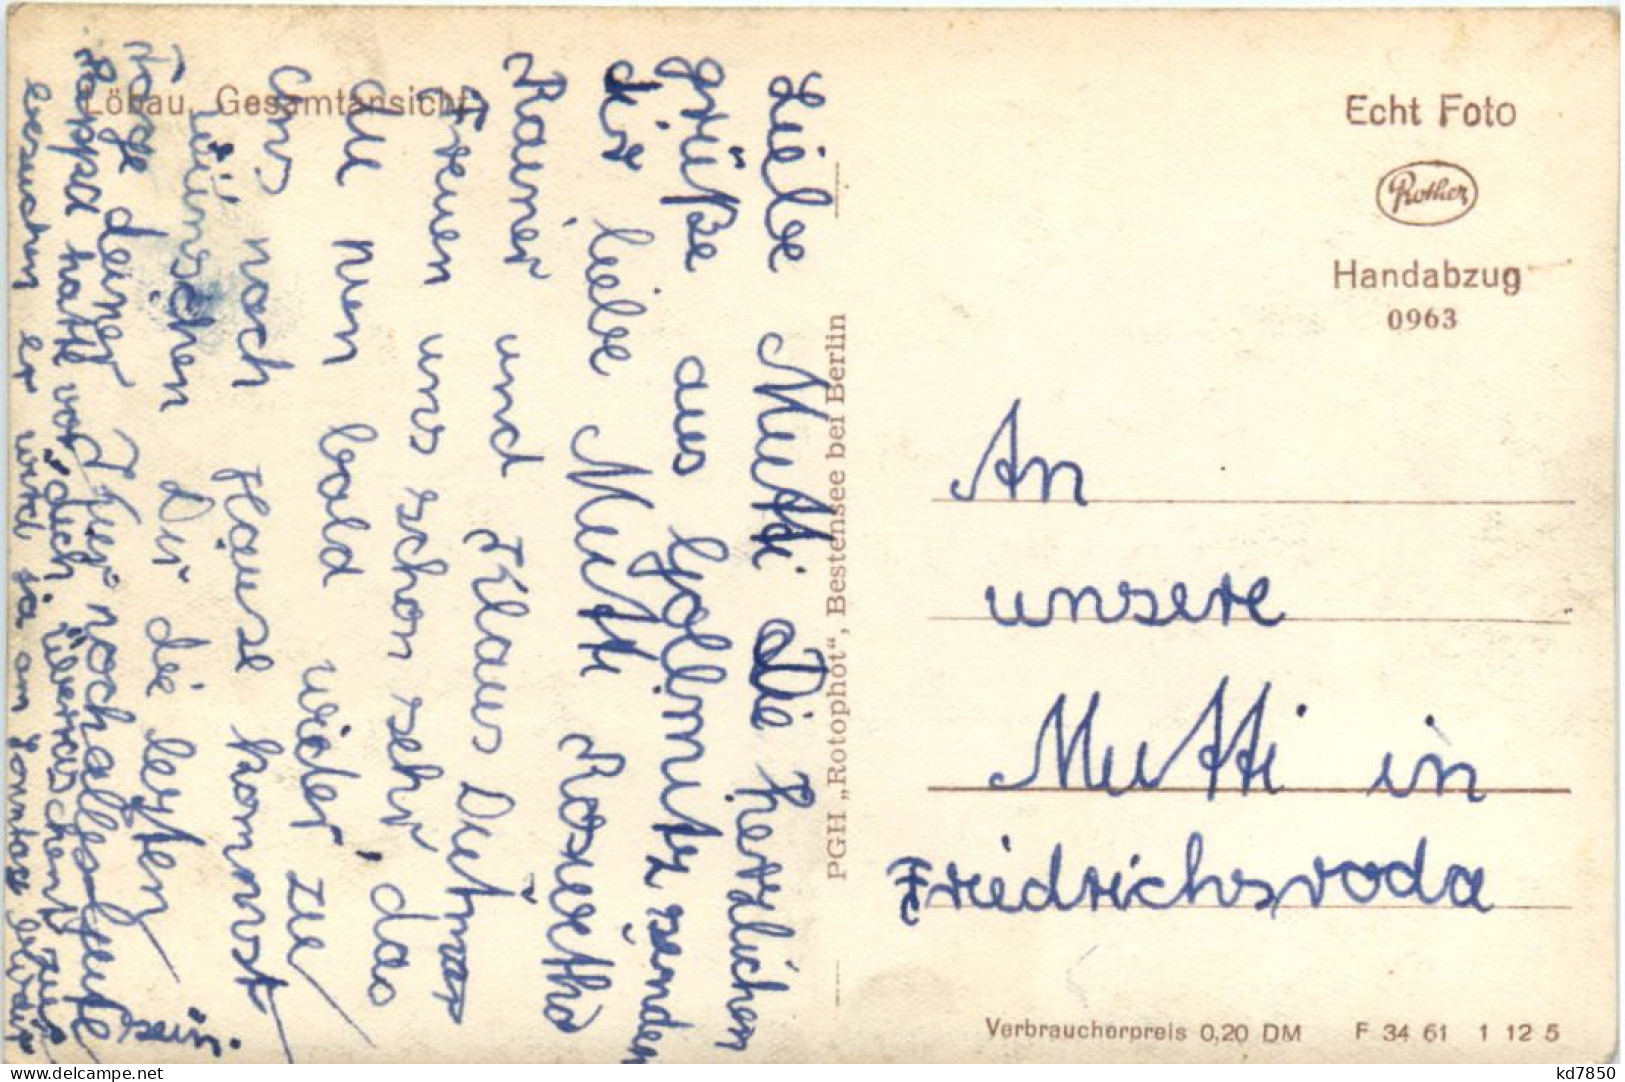 Löbau, Gesamtansicht
Liebe Mutti Die herzlichen
grüße aus Gollmitz senden
dir liebe Mutti Roswitha
Rainer und Klaus Dietmar
Freuen uns schon sehr, das
du nun bald wider zu
uns noch Hause kommst
wünschen Dir die letzten
Tage deiner Kur noch alles Gute
Pappa hatte vor dich überraschend zu
besuchen er wird ja am Sonntag
sein.
PGH „Rotophot“, Bestensee bei Berlin
Echt Foto
Rother
Handabzug
0963
An
unsere
Mutti in
Friedrichsroda
Verbraucherpreis 0,20 DM F 34 61 1 12 5
kd7850